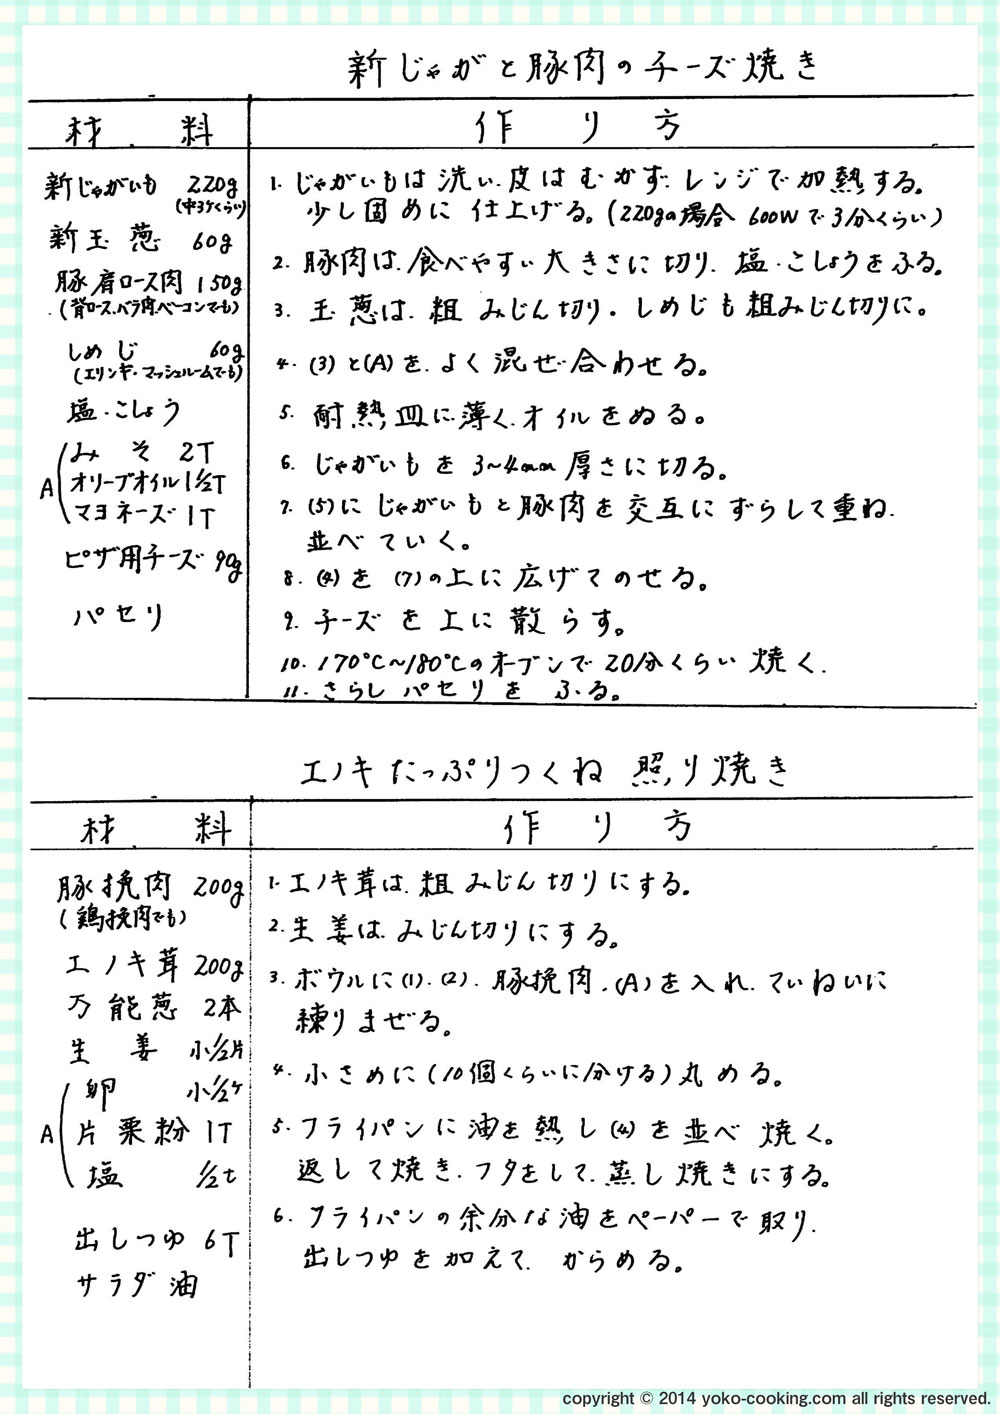 新じゃがと豚肉のチーズ焼き
材 料
作 り 方
新じゃがいも 220g
(中3ケくらい)
新玉葱 60g
豚肩ロース肉 150g
(背ロース、バラ肉、ベーコンでも)
しめじ 60g
(エリンギ・マッシュルームでも)
塩・こしょう
A
みそ 2T
オリーブオイル 1 1/2T
マヨネーズ 1T
ピザ用チーズ 90g
パセリ
1. じゃがいもは洗い、皮はむかず、レンジで加熱する。
少し固めに仕上げる。(220gの場合 600Wで3分くらい)
2. 豚肉は、食べやすい大きさに切り、塩・こしょうをふる。
3. 玉葱は、粗みじん切り。しめじも粗みじん切りに。
4. (3)と(A)を、よく混ぜ合わせる。
5. 耐熱皿に薄く、オイルをぬる。
6. じゃがいもを3~4mm厚さに切る。
7. (5)にじゃがいもと豚肉を交互にずらして重ね、
並べていく。
8. (4)を(7)の上に広げてのせる。
9. チーズを上に散らす。
10. 170℃~180℃のオーブンで20分くらい焼く。
11. さらしパセリをふる。
エノキたっぷりつくね照り焼き
材 料
作 り 方
豚挽肉 200g
(鶏挽肉でも)
エノキ茸 200g
万能葱 2本
生姜 小1/2片
A
卵 小1/2ケ
片栗粉 1T
塩 1/2t
出しつゆ 6T
サラダ油
1. エノキ茸は、粗みじん切りにする。
2. 生姜は、みじん切りにする。
3. ボウルに(1)、(2)、豚挽肉、(A)を入れ、ていねいに
練りまぜる。
4. 小さめに(10個くらいに分ける)丸める。
5. フライパンに油を熱し(4)を並べ焼く。
返して焼き、フタをして、蒸し焼きにする。
6. フライパンの余分な油をペーパーで取り、
出しつゆを加えて、からめる。
copyright © 2014 yoko-cooking.com all rights reserved.